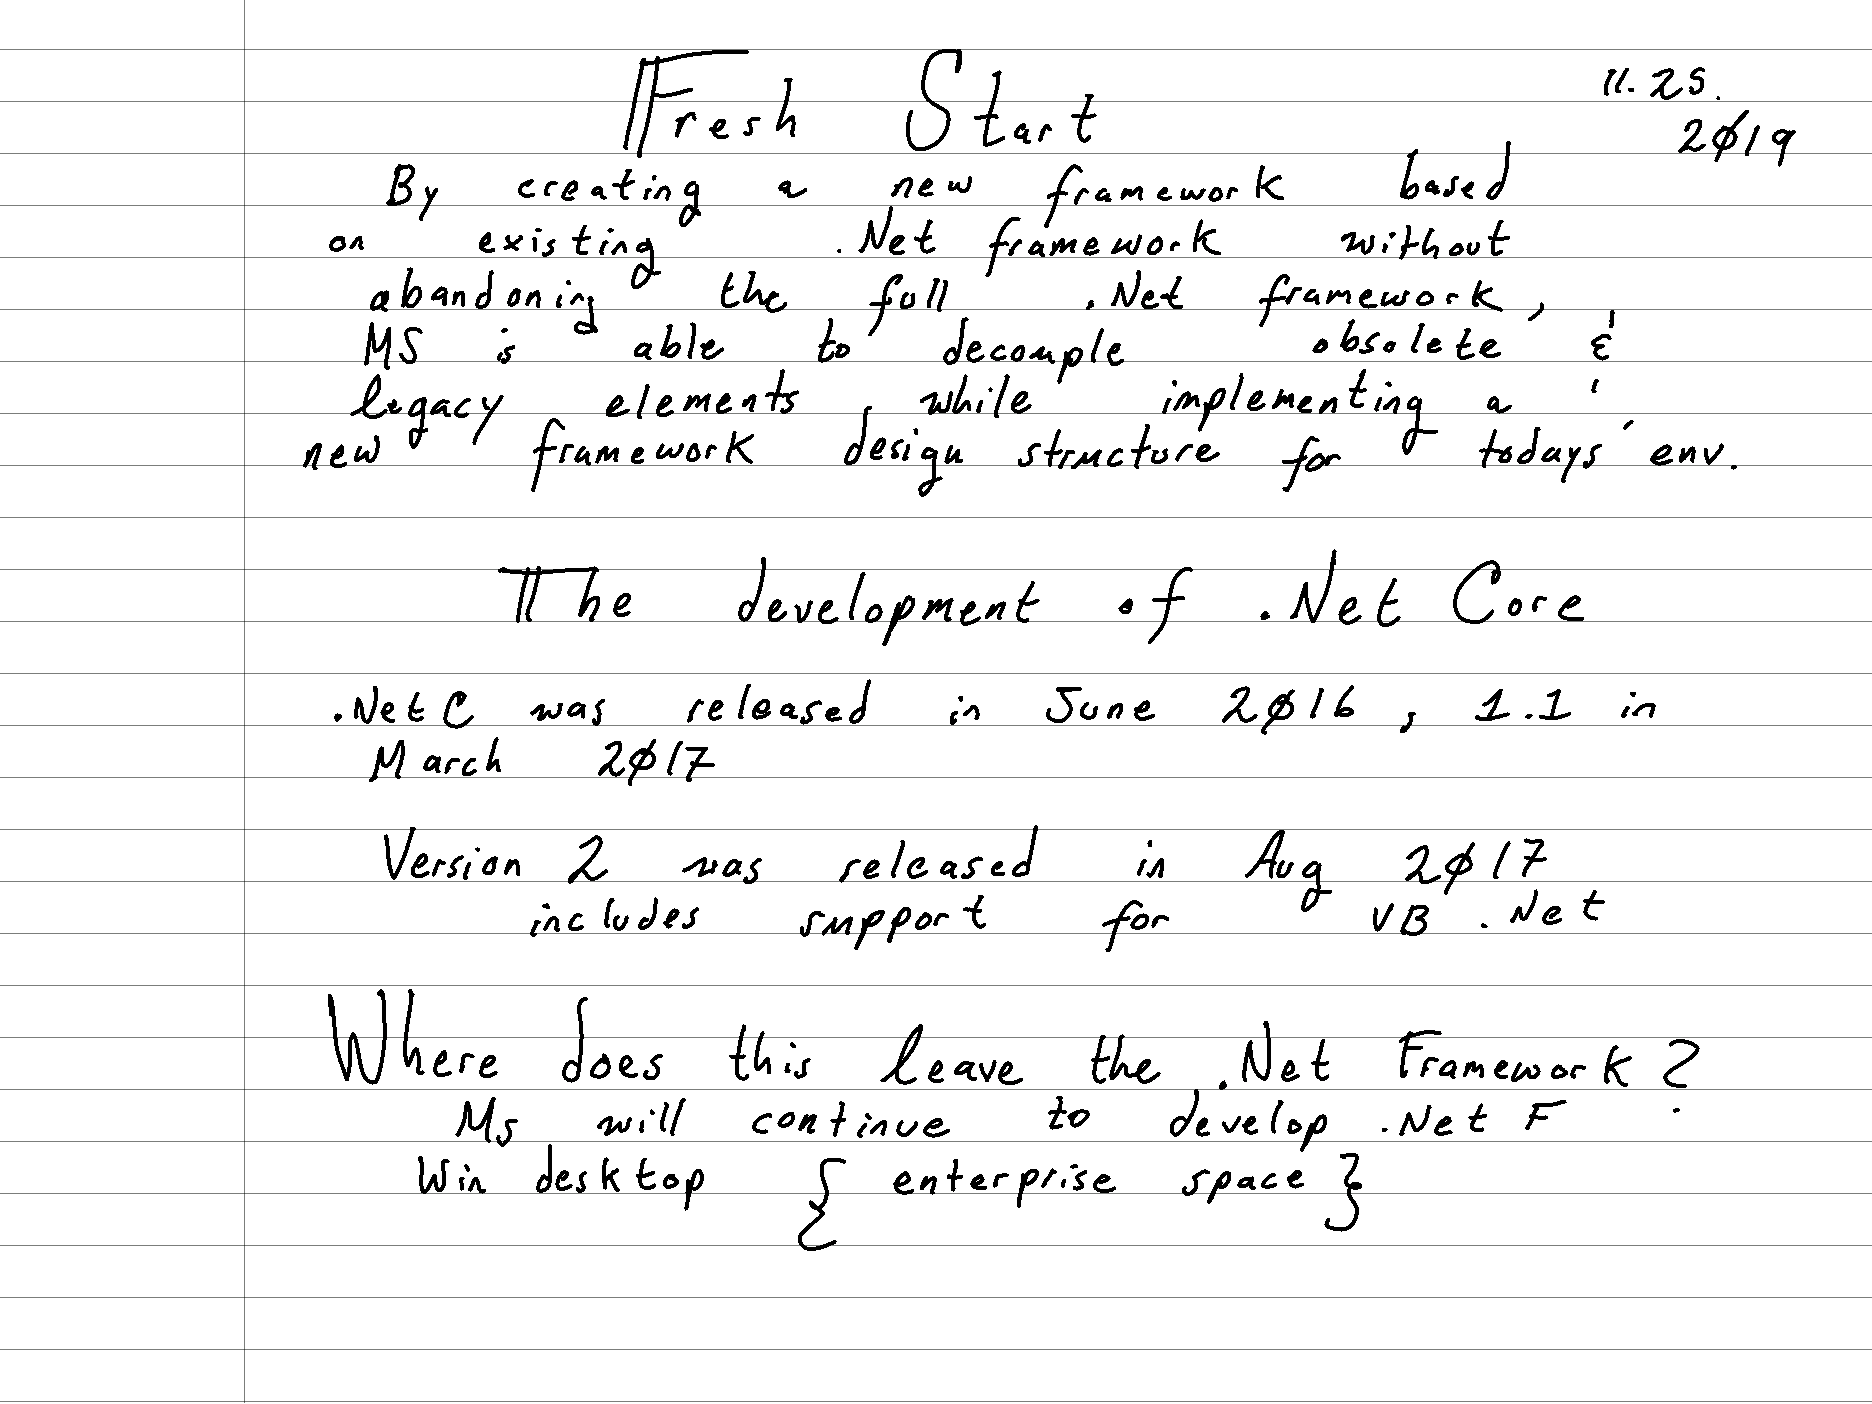 Fresh Start
11.25.
2019
By creating a new framework based
on existing .Net framework without
abandoning the full .Net framework,
MS is able to decouple obsolete &
legacy elements, while implementing a
new framework design structure for todays' env.
The development of .Net Core
.Net C was released in June 2016, 1.1 in
March 2017
Version 2 was released in Aug 2017
includes support for VB .Net
Where does this leave the .Net Framework?
Ms will continue to develop .Net F
Win desktop { enterprise space }